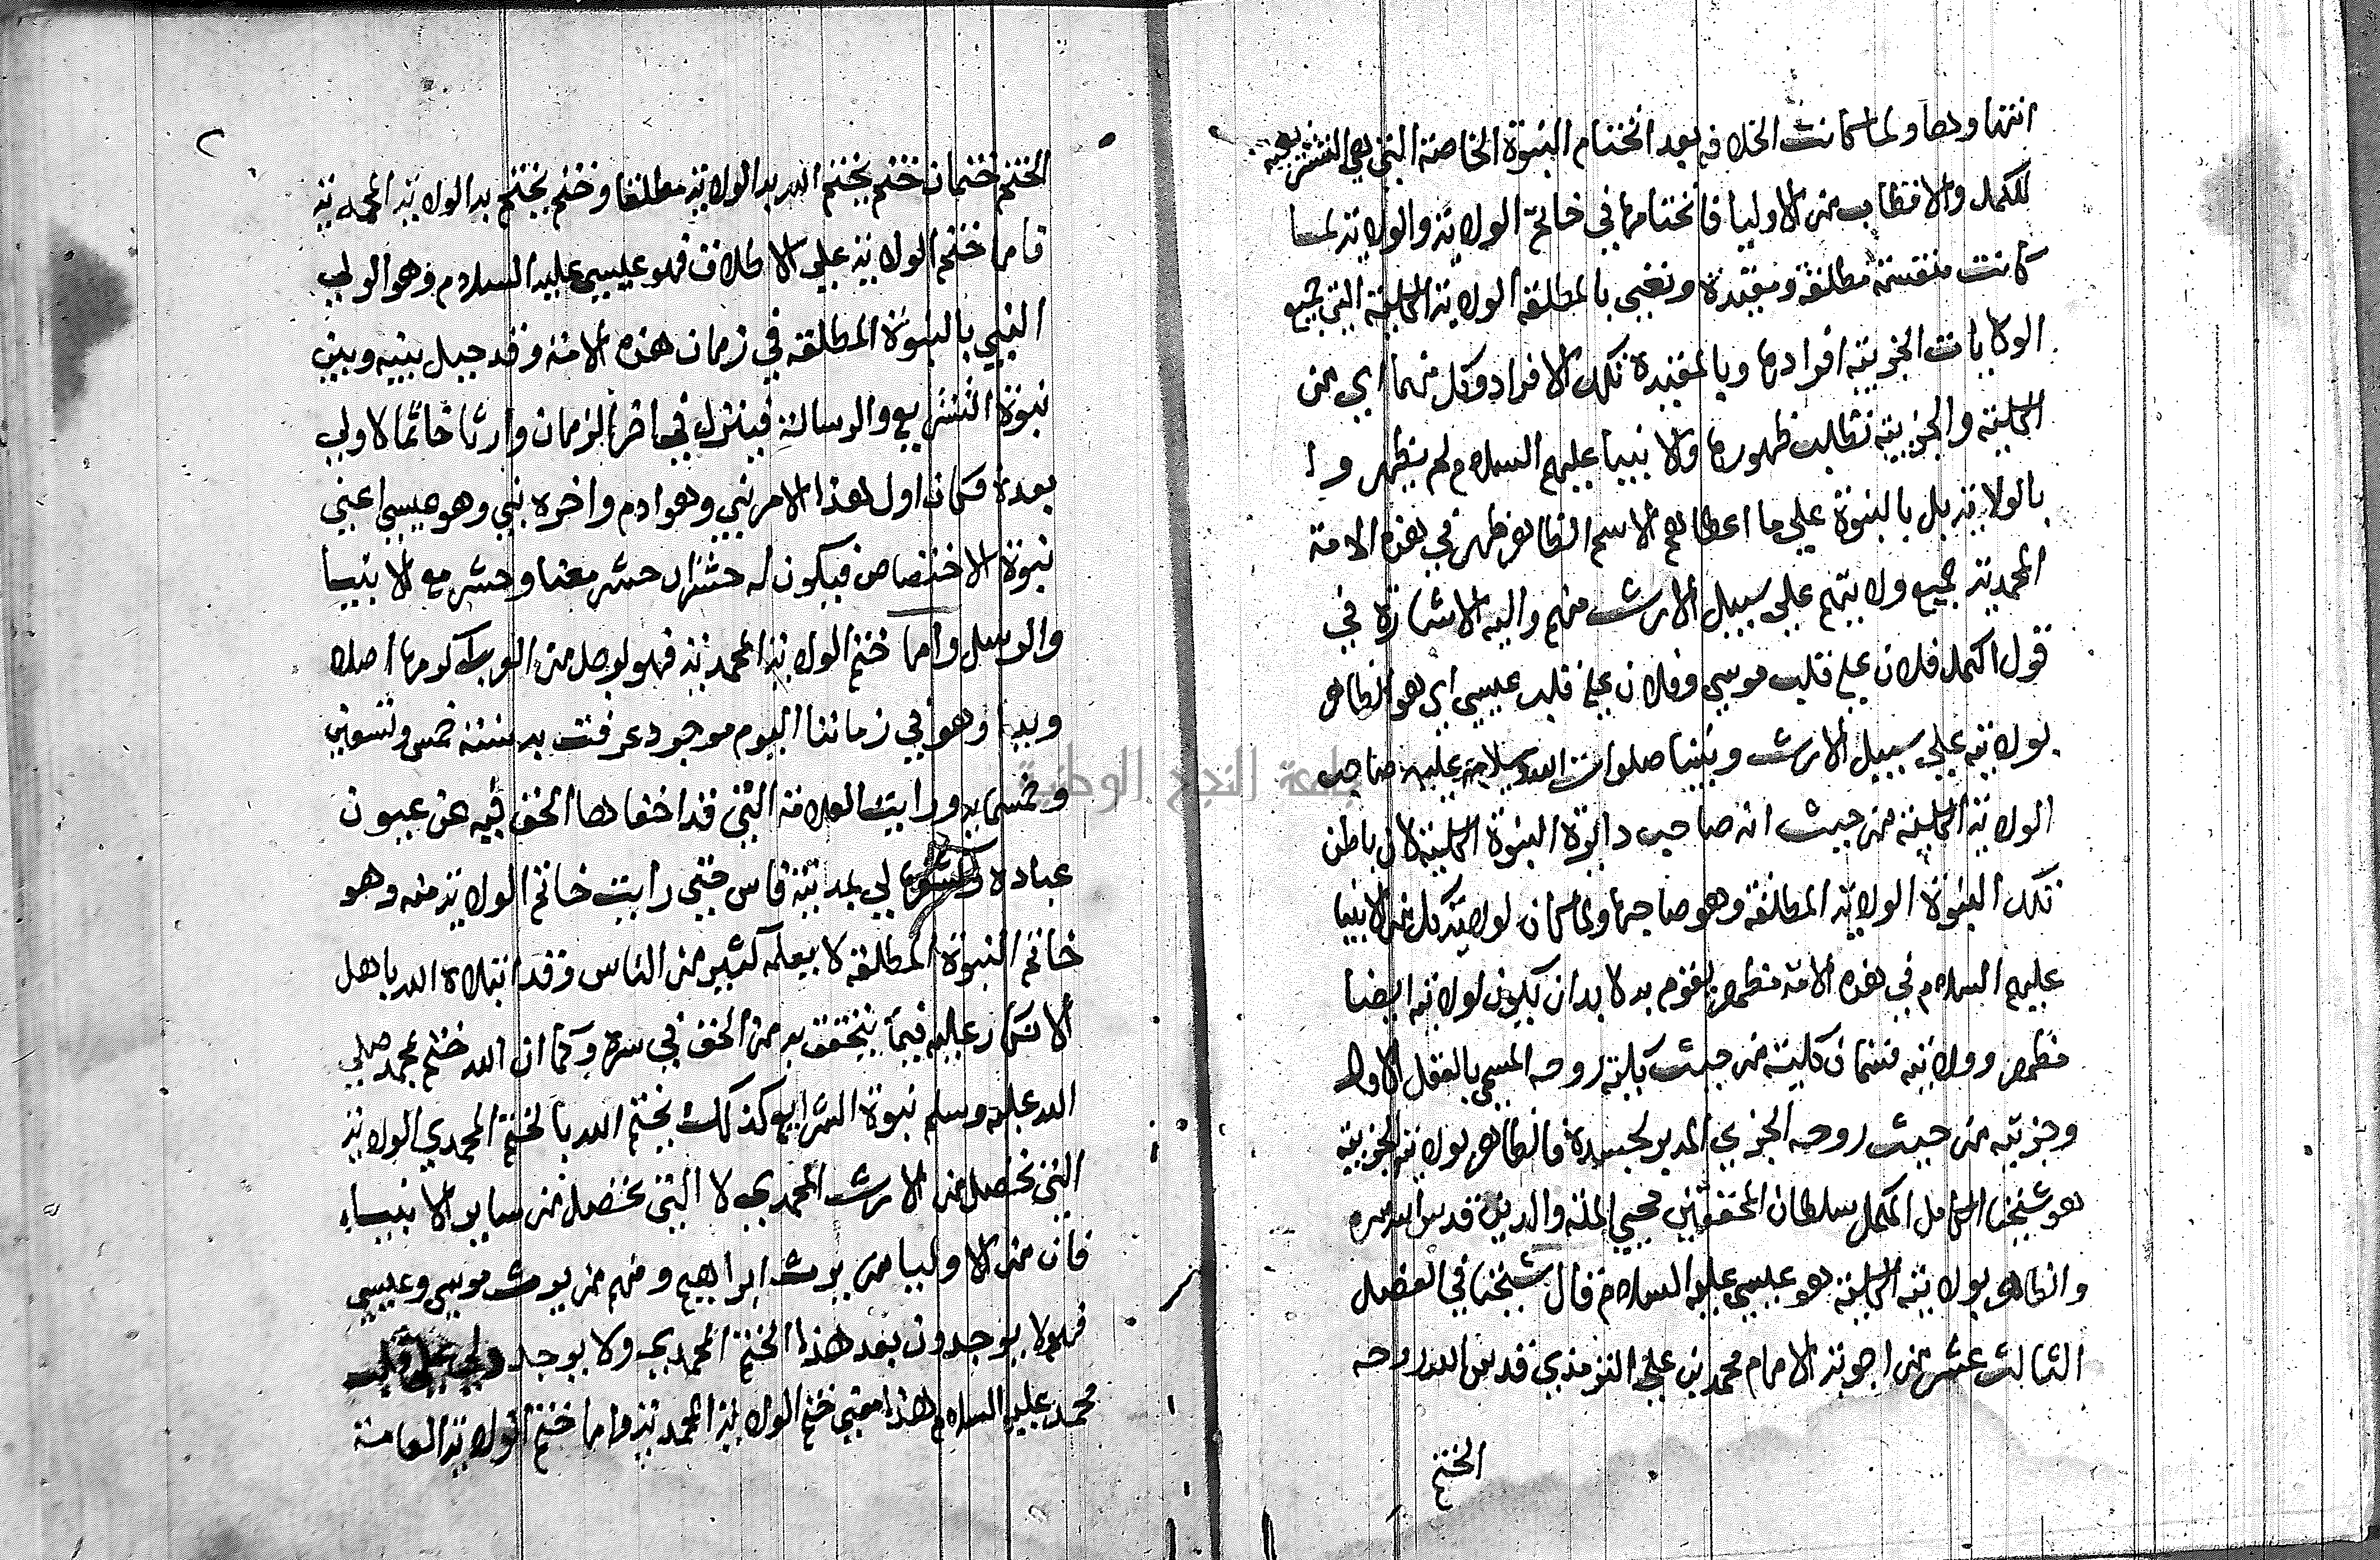 انتهاوها ولما كانت الخلافة بعد اختتام النبوة الخاصة التي هي التشريعية
للكمل والاقطاب من الاوليا فاختتامها في خاتم الولاية والولاية لما
كانت منقسمة مطلقة ومقيدة ونعني بالمطلقة الولاية الكلية التي جميع
الولايات الجزيية افرادها وبالمقيدة تلك الافراد وكل منهما اي من
الكلية والجزيية تطلب ظهورها والانبيا عليهم السلام لم يظهروا
بالولاية بل بالنبوة علي ما اعطاهم الاسم الظاهر ظهر في هذه الامة
المحمدية جميع ولايتهم علي سبيل الارث منهم واليه الاشارة في
قول الكمل فلان علي قلب موسي وفلان علي قلب عيسي اي هو الظاهر
بولايته علي سبيل الارث ونبينا صلوات الله وسلامه عليه صاحب
الولاية الكلية من حيث انه صاحب دايرة النبوة الكلية لان باطن
تلك النبوة الولاية المطلقة وهو صاحبها ولما كان لولاية كل من الانبيا
عليهم السلام في هذه الامة مظهر يقوم به لا بد ان يكون لولايته ايضا
مظهر وولايته قسمان كلية من حيث كلية روحه المسمي بالعقل الاول
وجزيية من حيث روحه الجزي المدبر لجسده فالظاهر بولايته الجزيية
هو شيخنا الكامل المكمل سلطان المحققين محيي الملة والدين قدس الله سره
والظاهر بولايته الكلية هو عيسي عليه السلام قال شيخنا في الفصل
الثالث عشر من اجوبة الامام محمد بن علي الترمذي قدس الله روحه
الختم
الختم ختمان ختم يختم الله به الولاية مطلقا وختم يختم به الولاية المحمدية
فاما ختم الولاية علي الاطلاق فهو عيسي عليه السلام وهو الولي
النبي بالنبوة المطلقة في زمان هذه الامة وقد حيل بينه وبين
نبوة التشريع والرسالة فينزل في اخر الزمان وارثا خاتما لا ولي
بعده فكان اول هذا الامر نبي وهو ادم واخره نبي وهو عيسي اعني
نبوة الاختصاص فيكون له حشران حشر معنا وحشر مع الانبيا
والرسل واما ختم الولاية المحمدية فهو لرجل من العرب اكرمها اصلا
ويدا وهو في زماننا اليوم موجود عرفت به سنة خمس وتسعين
وخمسماية ورايت العلامة التي قد اخفاها الحق فيه عن عيون
عباده وكشفها لي بمدينة فاس حتي رايت خاتم الولاية منه وهو
خاتم النبوة المطلقة لا يعلمه كثير من الناس وقد ابتلاه الله باهل
الانكار عليه فيما يتحقق به من الحق في سره وكما ان الله ختم بمحمد صلي
الله عليه وسلم نبوة الشرايع كذلك يختم الله بالختم المحمدي الولاية
التي تحصل من الارث المحمدي لا التي تحصل من ساير الانبياء
فان من الاوليا من يرث ابراهيم ومنهم من يرث موسي وعيسي
فهولا يوجدون بعد هذا الختم المحمدي ولا يوجد ولي علي قلب
محمد عليه السلام هذا معني ختم الولاية المحمدية واما ختم الولاية العامة
جامعة النجاح الوطنية